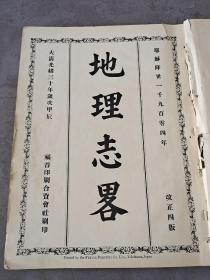 耶穌降世一千九百零四年
改正四版
地理志畧
大淸光緒三十年歲次甲辰
福音印刷合資會社刷印
Printed by the Fukuin Printing Co., Ltd., Yokohama, Japan